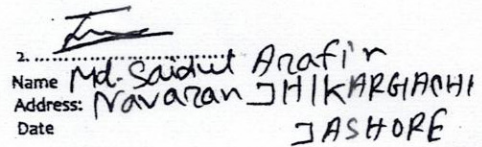 2. ........................
Name Md. Saidul Arafin
Address: Navaran JHIKARGACHHI
Date JASHORE